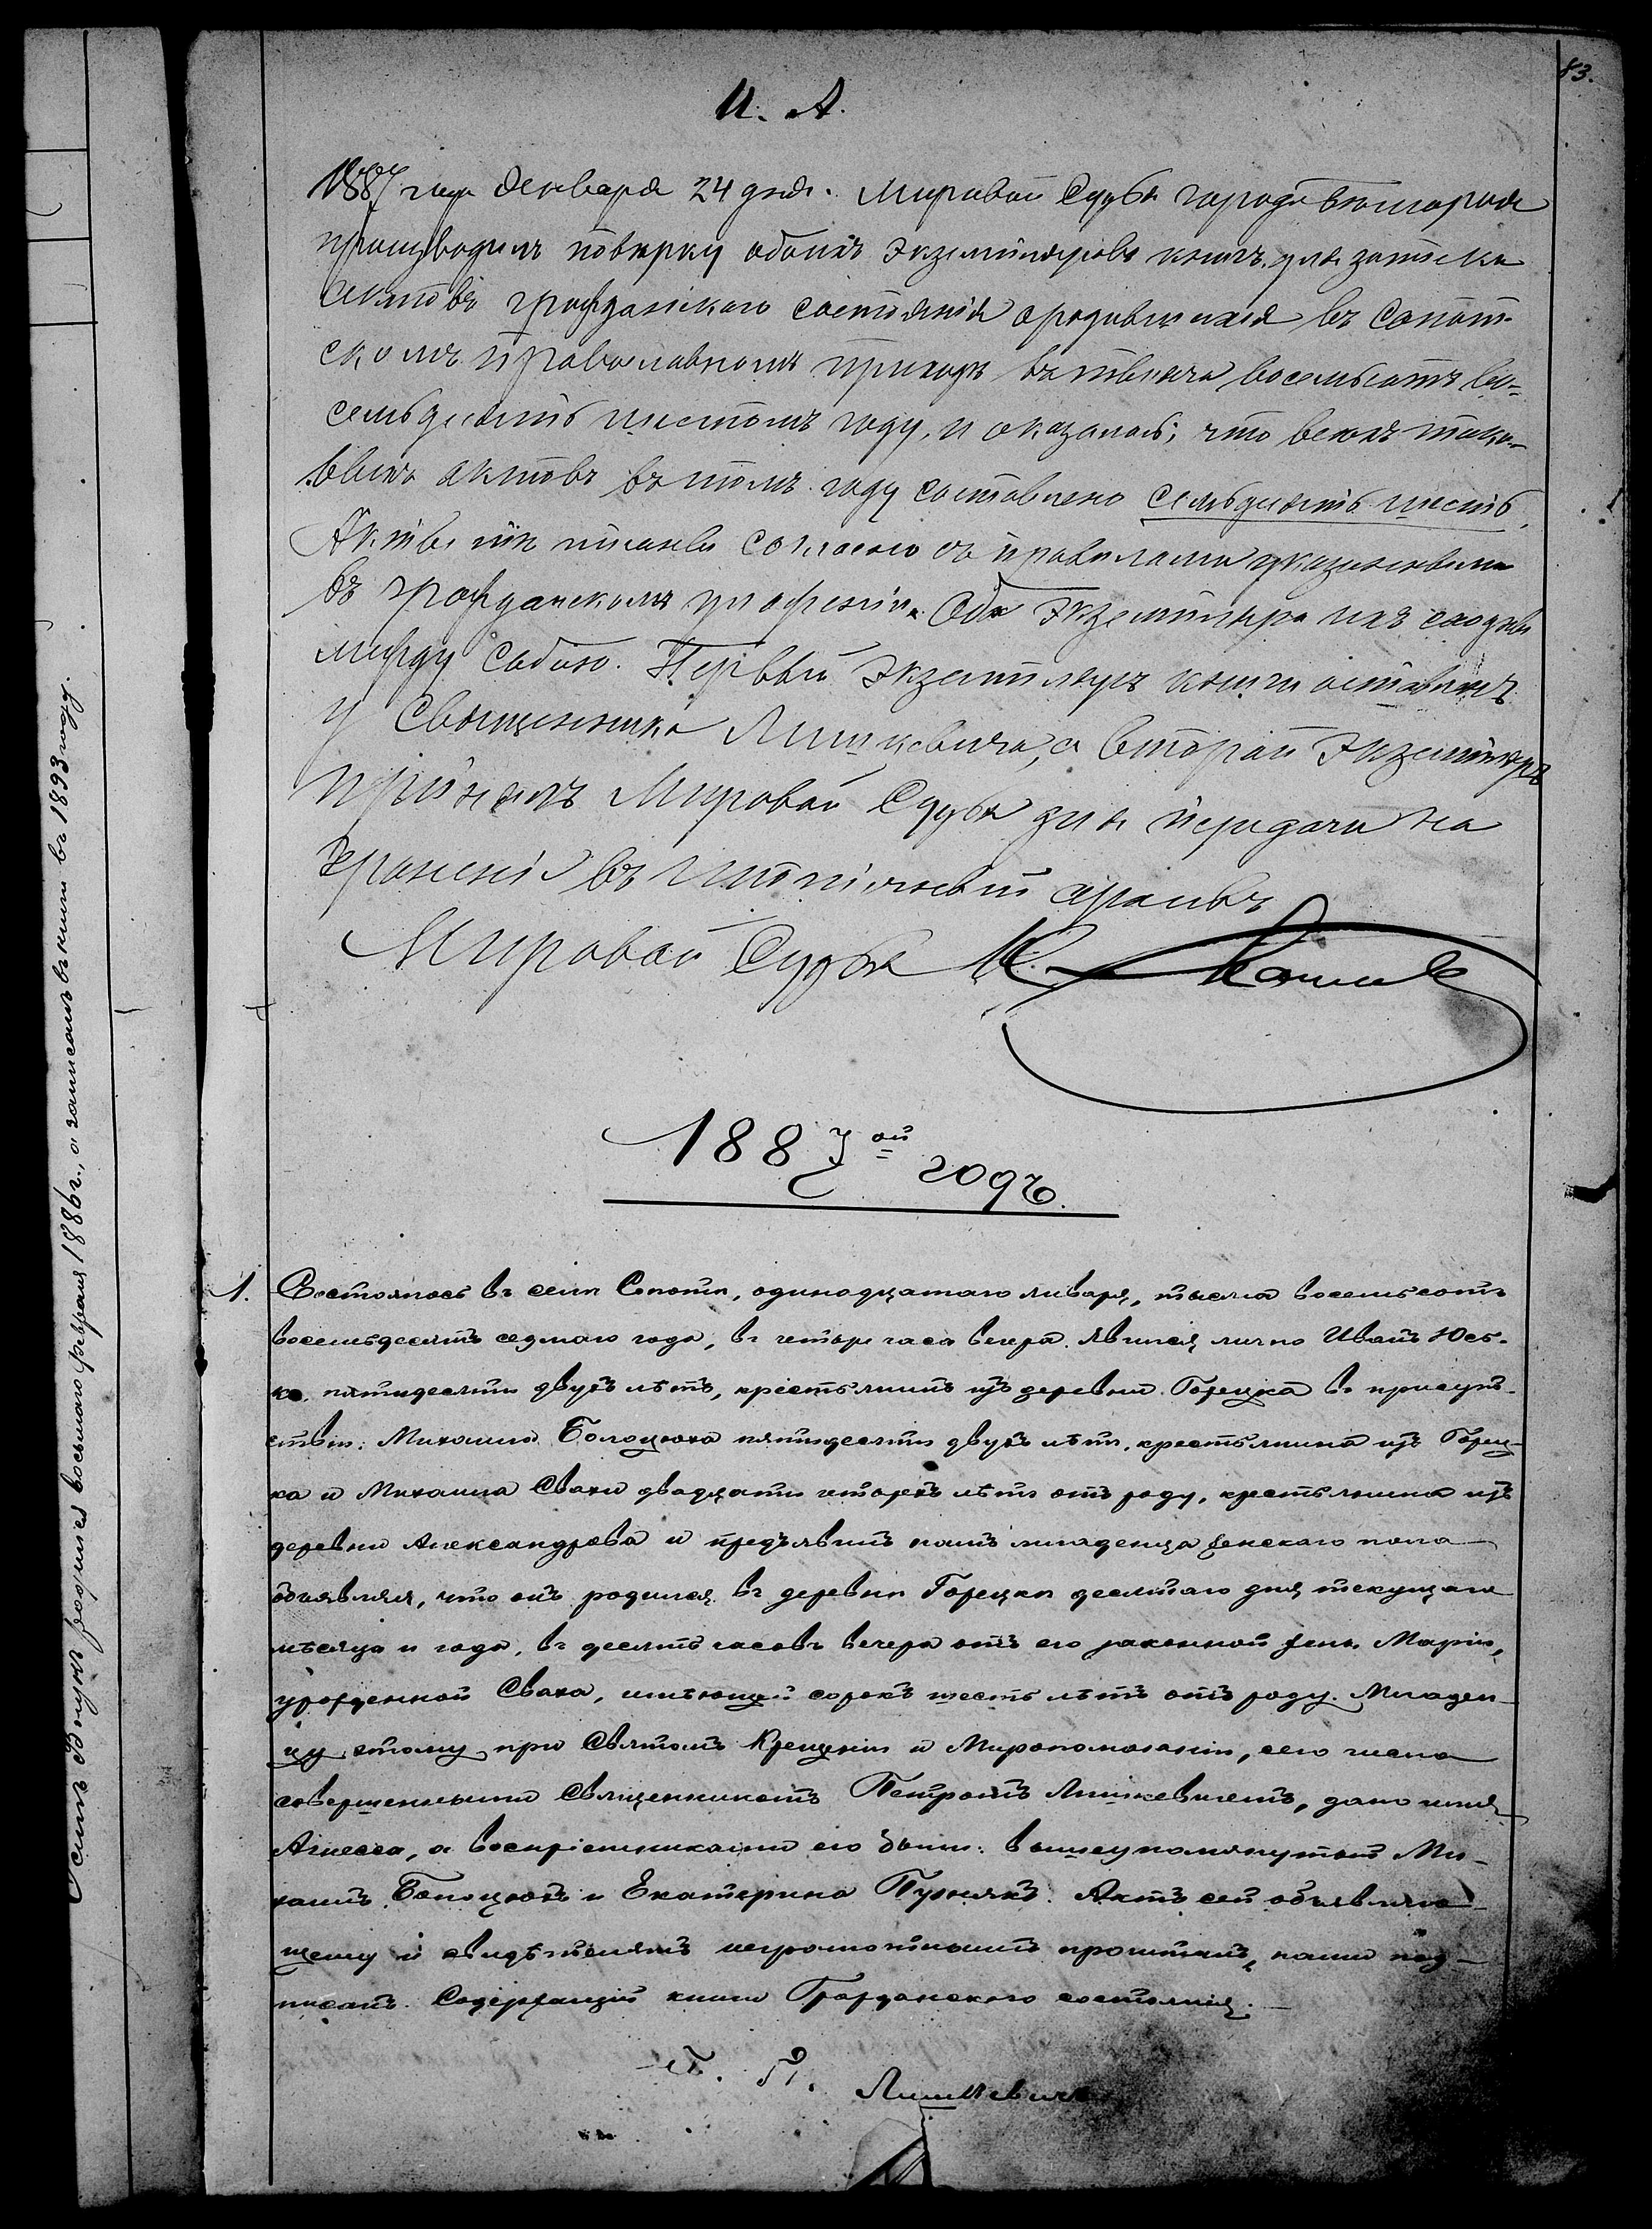 83.
И. А.
1887 года Января 24 дня. Мировой Судья города Бѣлгорая
производилъ повѣрку обоихъ экземпляровъ книгъ для записи
актовъ гражданскаго состоянія о родившихся въ Сопот-
скомъ православномъ приходѣ въ тысяча восемьсотъ во-
семьдесятъ шестомъ году, и оказалось, что всѣхъ тако-
выхъ актовъ въ томъ году составлено семьдесятъ шесть.
Акты эти писаны согласно съ правилами указанными
въ гражданскомъ уложеніи. Оба экземпляра ихъ сходны
между собою. Первый экземпляръ книги оставленъ
у Священника Лишкевича, а второй экземпляръ
принялъ Мировой Судья для передачи на
храненіе въ ипотечный архивъ
Мировой Судья
1887ой годъ.
1. Состоялось въ селѣ Сопотѣ, одинадцатаго января, тысяча восемьсотъ
восемьдесятъ седмаго года, въ четыре часа вечера. Явился лично Иванъ Юсь-
ко, пятидесяти двухъ лѣтъ, крестьянинъ изъ деревни Горецка въ присут-
ствіи: Михаила Болоцюха пятидесяти двухъ лѣтъ, крестьянина изъ Горец-
ка и Михаила Сваки двадцати четырехъ лѣтъ отъ роду, крестьянина изъ
деревни Александрова и предъявилъ намъ младенца женскаго пола
объявляя, что онъ родился въ деревнѣ Горецкѣ десятаго дня текущаго
мѣсяца и года, въ десять часовъ вечера отъ его законной жены Маріи,
урожденной Свака, имѣющей сорокъ шесть лѣтъ отъ роду. Младен-
цу этому при Святомъ Крещеніи и Миропомазаніи, сего числа
совершенными Священникомъ Петромъ Лишкевичемъ, дано имя
Агнесса, а воспріемниками его были: вышеупомянутый Ми-
хаилъ Болоцюхъ и Екатерина Пузнякъ. Актъ сей объявляю-
щему и свидѣтелямъ неграмотнымъ прочитанъ, нами под-
писанъ. Содержащій книги Гражданскаго состоянія.
С. П. Лишкевичъ
родился восьмаго февраля 1886 г., а записанъ въ книги въ 1893 году.